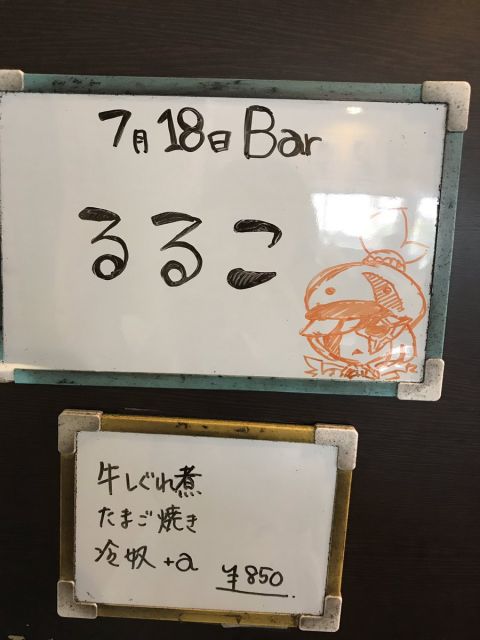 7月18日 Bar
るるこ
牛しぐれ煮
たまご焼き
冷奴 +a
¥850